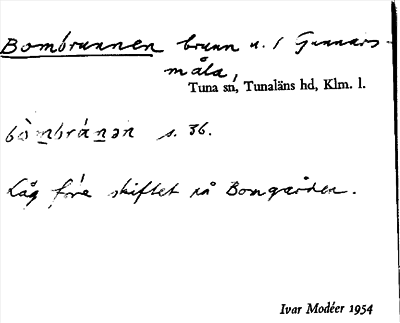 Bombrunnen brunn n. i Gunnars-
måla,
Tuna sn, Tunaläns hd, Klm. l.
bòmbránən s. 36.
Låg före skiftet på Bomgården.
Ivar Modéer 1954